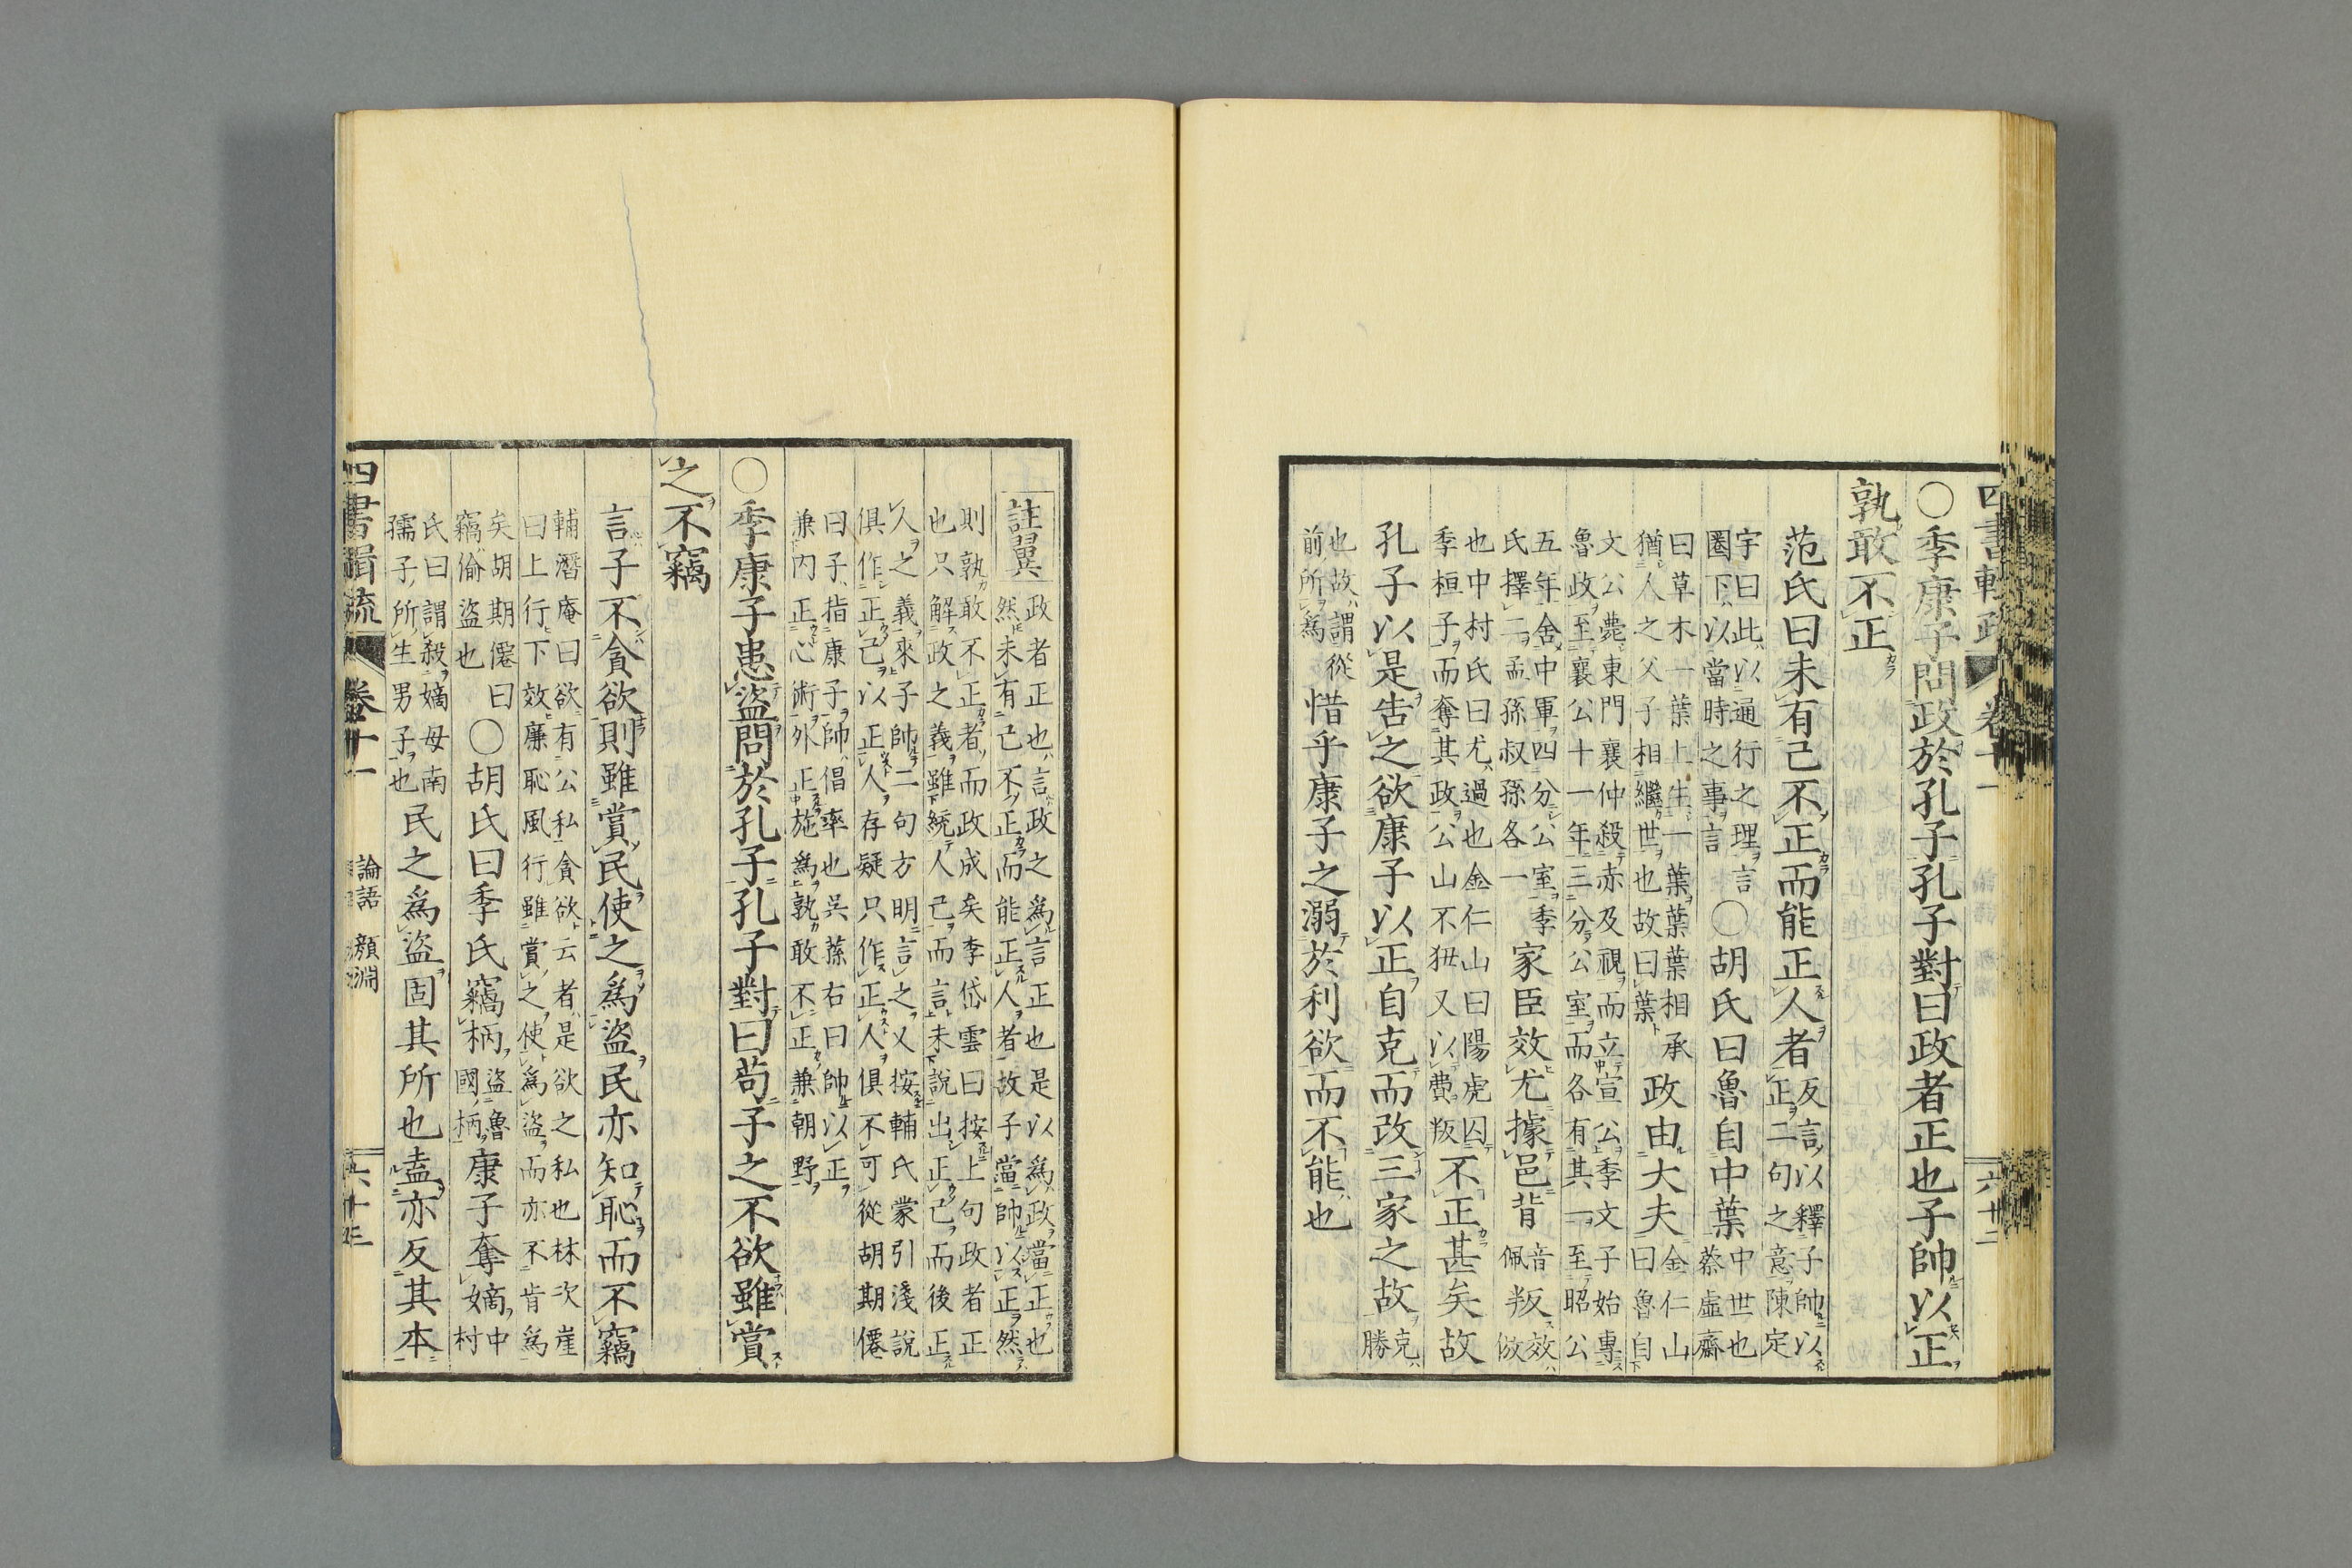 ○季康子問政於孔子孔子對曰政者正也子帥以正
孰敢不正
范氏曰未有己不正而能正人者反言以釋子帥以正二句之意陳定
宇曰此以通行之理言圏下以當時之事言○胡氏曰魯自中葉中世也蔡虛齋
曰草木一葉上生一葉葉葉相承猶人之父子相繼世也故曰葉政由大夫金仁山曰魯自
文公薨東門襄仲殺赤及視而立宣公季文子始專魯政至襄公十一年三分公室而各有其一至昭公
五年舍中軍四分公室季氏擇二孟孫叔孫各一家臣效尤據邑背音佩叛效倣
也中村氏曰尤過也金仁山曰陽虎囚季桓子而奪其政公山不狃又以費叛不正甚矣故
孔子以是告之欲康子以正自克而改三家之故克勝
也故謂從前所爲惜乎康子之溺於利欲而不能也
註翼政者正也言政之爲言正也是以爲政當正也然未有己不正而能正人者故子當帥以正然
則孰敢不正者而政成矣李岱雲曰按上句政者正也只解政之義雖統人己而言未說出正己而後正
人之義來子帥二句方明言之又按輔氏蒙引淺說俱作正己以正人存疑只作正人俱不可從胡期僊
曰子指康子帥倡率也吳蓀右曰帥以正兼内正心術外正施爲孰敢不正兼朝野
○季康子患盜問於孔子孔子對曰苟子之不欲雖賞
之不竊
言子不貪欲則雖賞民使之爲盜民亦知恥而不竊
輔潛庵曰欲有公私貪欲云者是欲之私也林次崖曰上行下效廉恥風行雖賞之使爲盜而亦不肯爲
矣胡期僊曰竊偷盜也○胡氏曰季氏竊柄盜魯國柄康子奪嫡中村
氏曰謂殺嫡母南孺子所生男子也民之爲盜固其所也盍亦反其本
四書輯疏　卷十一　論語　顏淵